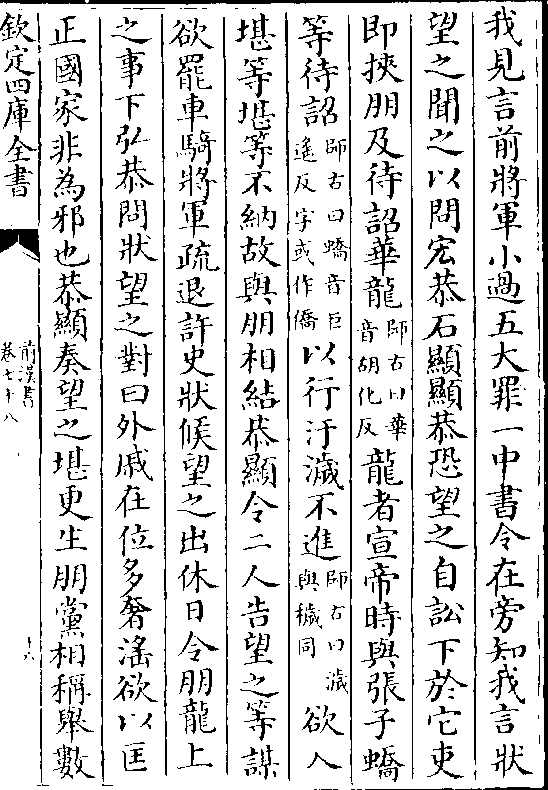 我見言前將軍小過五大罪一中書令在旁知我言狀
望之聞之以問宏恭石顯顯恭恐望之自訟下於它吏
即挾朋及待詔華龍師古曰華音胡化反龍者宣帝時與張子蟜
等待詔師古曰蟜音巨遙反字或作僑以行汙濊不進師古曰濊與穢同欲入
堪等堪等不納故與朋相結恭顯令二人告望之等謀
欲罷車騎將軍疏退許史狀候望之出休日令朋龍上
之事下弘恭問狀望之對曰外戚在位多奢滛欲以匡
正國家非為邪也恭顯奏望之堪更生朋黨相稱舉數
欽定四庫全書
前漢書
卷七十八
十六